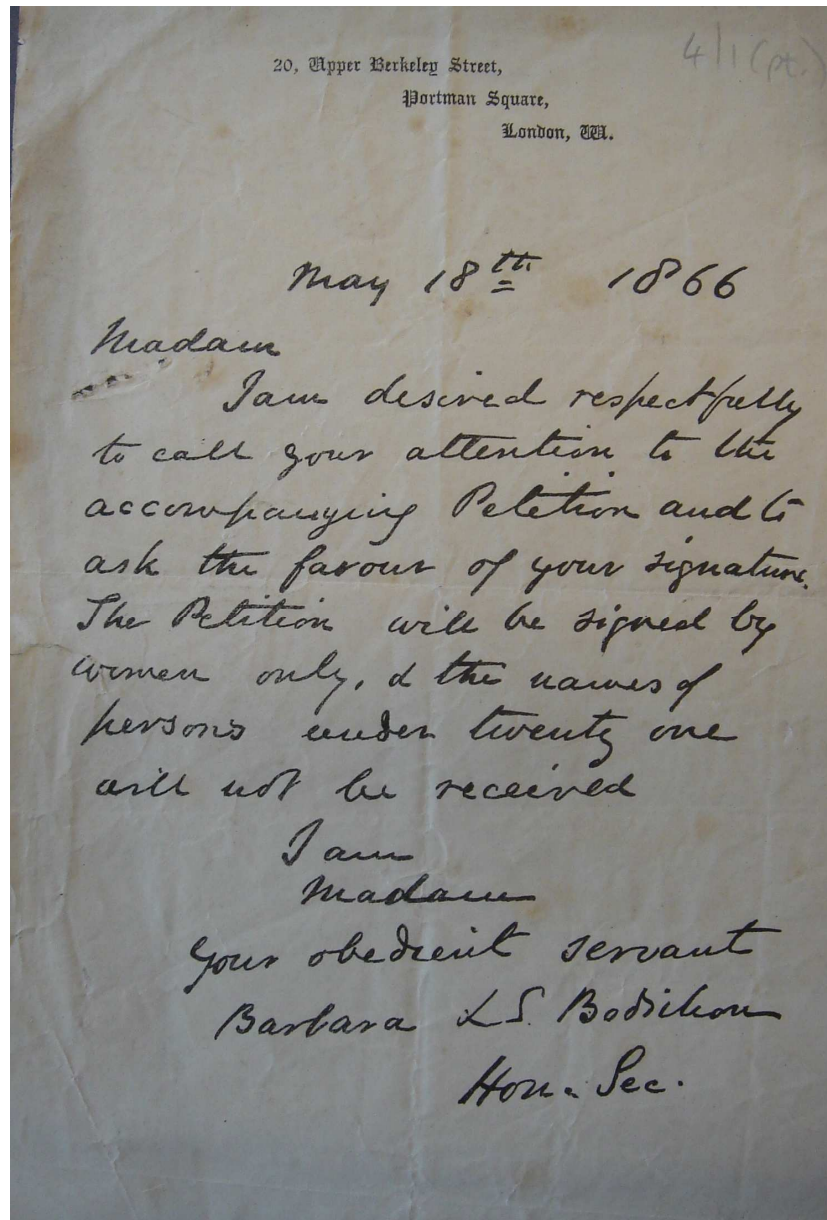 4/1 (pt.)
20, Upper Berkeley Street,
Portman Square,
London, W.
May 18th 1866
Madam
I am desired respectfully
to call your attention to the
accompanying Petition and to
ask the favour of your signature.
The Petition will be signed by
women only, & the names of
persons under twenty one
will not be received
I am
Madam
Your obedient servant
Barbara L S. Bodichon
Hon. Sec.